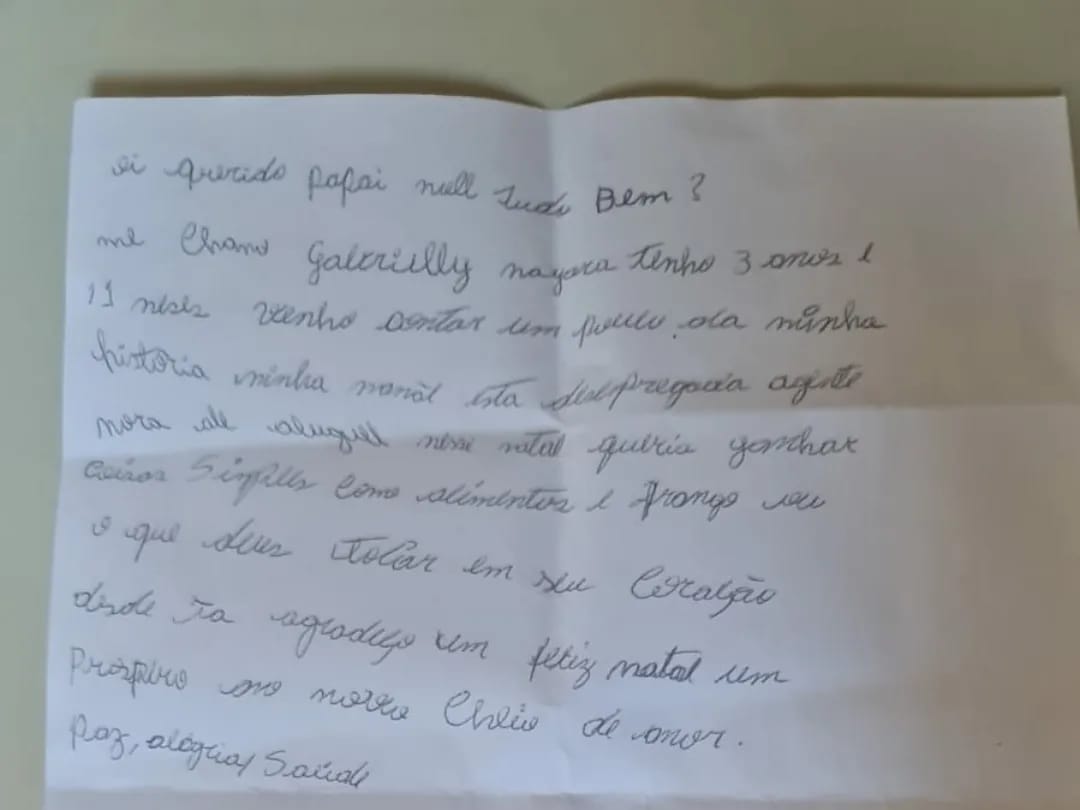 oi querido papai null tudo Bem ?
me Chamo Gabrielly nayara tenho 3 anos e
11 meses venho contar um pouco da minha
história minha mamãe esta desepregada agente
mora de aluguel nesse natal queria ganhar
coisas Simples Como alimentos e frango ou
o que deus tocar em seu Coração
desde ja agradeço um feliz natal um
Prospero ano novo Cheio de amor.
Paz, alegria, Saúde